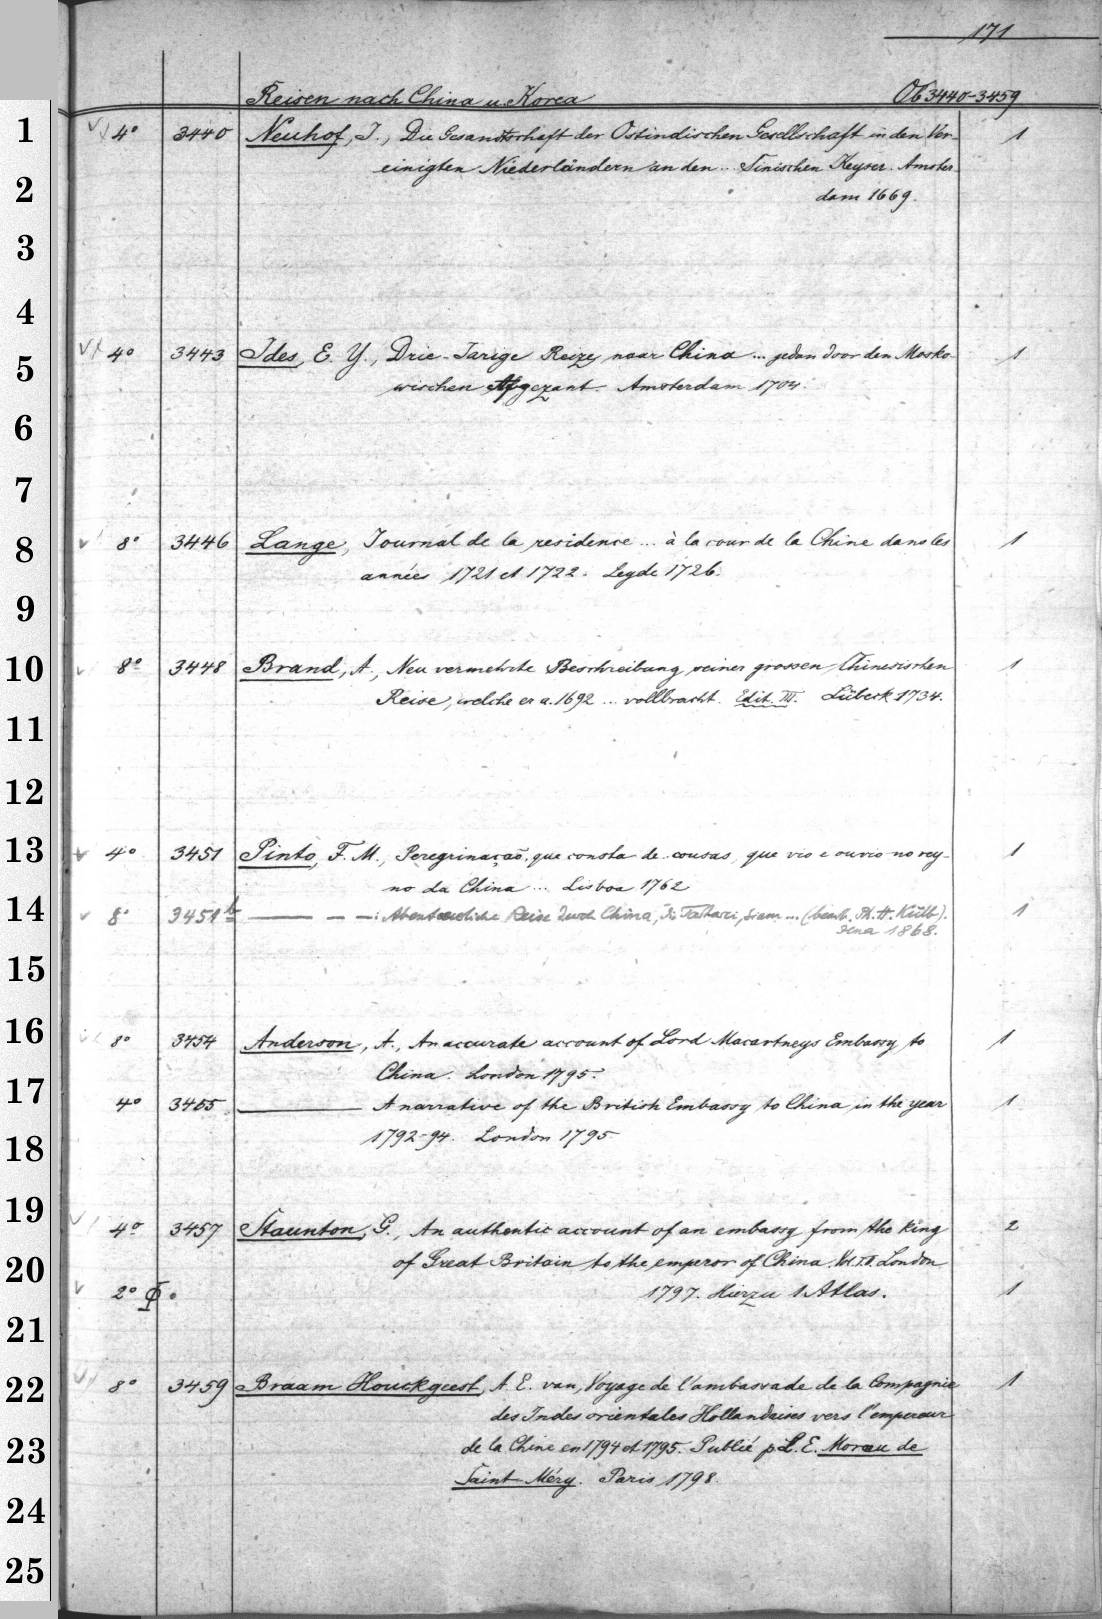 171
Reisen nach China u. Korea Ob 3440-3459
1 4° 3440 Neuhof, J., Die Gesandtschaft der Ostindischen Gesellschaft in den Ver- 1
2 einigten Niederländern an den ... Sinischen Keyser. Amster-
dam 1669.
3
4
5 4° 3443 Ides, E. Y., Drie-Jarige Reize naar China ... gedan door den Mosko- 1
wischen Afgezant. Amsterdam 1704.
6
7
8 8° 3446 Lange, Journal de la residence ... à la cour de la Chine dans les 1
années 1721 et 1722. Leyde 1726.
9
10 8° 3448 Brand, A., Neu vermehrte Beschreibung seiner grossen Chinesischen 1
Reise, welche er a. 1692 ... vollbracht. Edit. III. Lübeck 1734.
11
12
13 4° 3451 Pinto, F. M., Peregrinaçaõ, que consta de cousas, que vio e ouvio no rey- 1
no da China ... Lisboa 1762
14 8° 3451b ——— – – : Abenteuerliche Reise durch China, d. Tattarei, Siam ... (bearb. Ph. H. Külb). 1
Jena 1868.
15
16 8° 3454 Anderson, A., An accurate account of Lord Macartneys Embassy to 1
China. London 1795.
17 4° 3455 ——— A narrative of the British Embassy to China in the year 1
18 1792-94. London 1795
19 4° 3457 Staunton, G., An authentic account of an embassy from the king 2
20 of Great Britain to the emperor of China. Vol. I.II. London
2° Φ. 1797. Hierzu 1 Atlas. 1
21
22 8° 3459 Braam Houckgeest, A. E. van, Voyage de l'ambassade de la Compagnie 1
des Indes orientales Hollandaises vers l'empereur
23 de la Chine en 1794 et 1795. Publié p. L. E. Moreau de
Saint-Méry. Paris 1798.
24
25